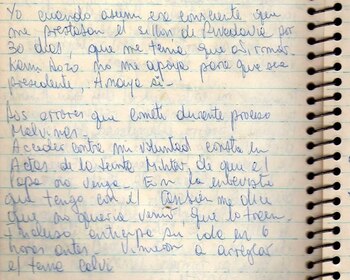 Yo cuando asumí era consciente que
me prestaban el sillon de Rivadavia por
30 dias, que me tenia que afirmar.
Lami Dozo no me apoya para que sea
presidente, Anaya si.
Los errores que cometi durante proceso
Malvinas.
Acceder contra mi voluntad consta en
Actas de la Junta Militar, de que el
Papa no venga. En la entrevista
que tengo con el me dice
que no queria venir que lo traen.
Incluso anticipa su ida en 6
horas antes. Vinieron a arreglar
el tema